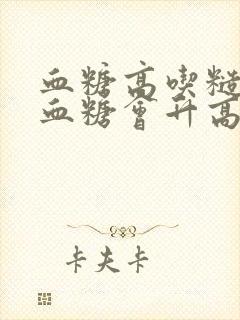 血糖高喫糙
血糖會升高
卡夫卡